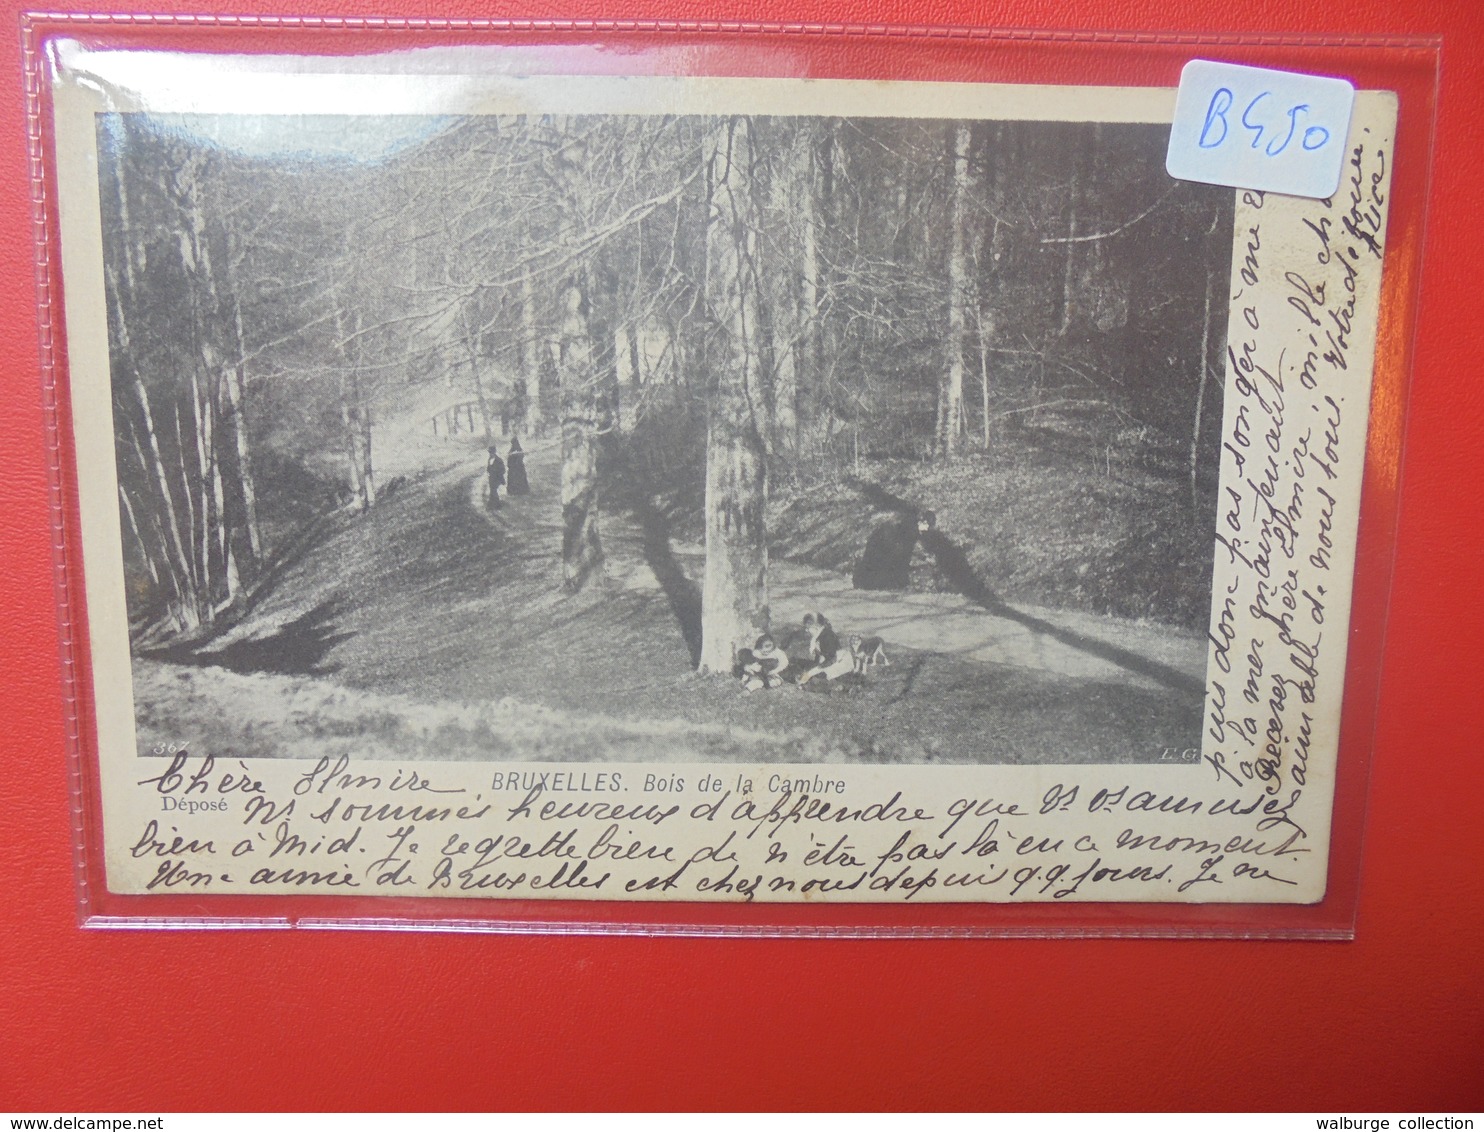 B450
367
E.G.
Chère Elmire
BRUXELLES. Bois de la Cambre
Déposé
Ns. sommes heureux d'apprendre que Vs. Vs. amusez
bien à Mid. Je regrette bien de n'être pas là en ce moment.
Une amie de Bruxelles est chez nous depuis qq. jours. Je ne
puis donc pas songer à me
à la mer maintenant
Recevez chère Elmire, mille
aimable de nous tous. Votre
Alice.
walburge collection
delcampe.net